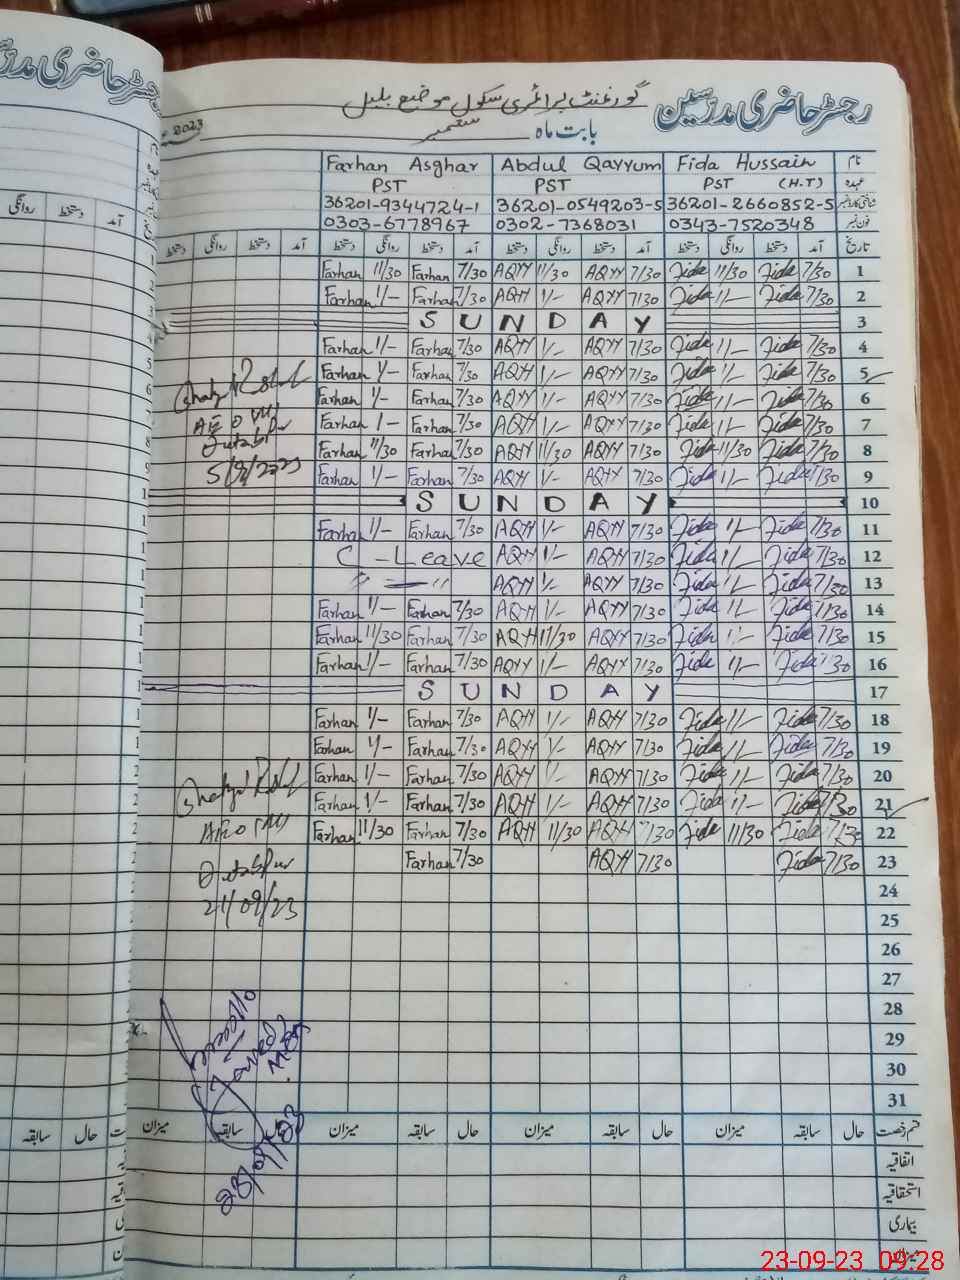 رجسٹر حاضری مدرسین گورنمنٹ پرائمری سکول موضع بلیل
بابت ماہ ستمبر 2023
نام Fida Hussain Abdul Qayyum Farhan Asghar
عہدہ PST (H.T) PST PST
36201-2660852-5 36201-0549203-5 36201-9344724-1
فون نمبر 0343-7520348 0302-7368031 0303-6778967
تاریخ آمد دستخط روانگی دستخط آمد دستخط روانگی دستخط آمد دستخط روانگی دستخط آمد دستخط روانگی دستخط
1 7/30 Fida 11/30 Fida 7/30 AQYY 11/30 AQYY 7/30 Farhan 11/30 Farhan
2 7/30 Fida 1/- Fida 7/30 AQYY 1/- AQYY 7/30 Farhan 1/- Farhan
3 SUNDAY
4 7/30 Fida 1/- Fida 7/30 AQYY 1/- AQYY 7/30 Farhan 1/- Farhan
5 7/30 Fida 1/- Fida 7/30 AQYY 1/- AQYY 7/30 Farhan 1/- Farhan
6 7/30 Fida 1/- Fida 7/30 AQYY 1/- AQYY 7/30 Farhan 1/- Farhan
7 7/30 Fida 1/- Fida 7/30 AQYY 1/- AQYY 7/30 Farhan 1- Farhan
8 7/30 Fida 11/30 Fida 7/30 AQYY 11/30 AQYY 7/30 Farhan 11/30 Farhan
9 7/30 Fida 1/- Fida 7/30 AQYY 1/- AQYY 7/30 Farhan 1/- Farhan
5/9/2023
10 SUNDAY
11 7/30 Fida 1/- Fida 7/30 AQYY 1/- AQYY 7/30 Farhan 1/- Farhan
12 7/30 Fida 1/- Fida 7/30 AQYY 1/- AQYY C-Leave
13 7/30 Fida 1/- Fida 7/30 AQYY 1/- AQYY 〃 — 〃
14 7/30 Fida 1/- Fida 7/30 AQYY 1/- AQYY 7/30 Farhan 1/- Farhan
15 7/30 Fida 1/- Fida 7/30 AQYY 11/30 AQYY 7/30 Farhan 11/30 Farhan
16 7/30 Fida 1/- Fida 7/30 AQYY 1/- AQYY 7/30 Farhan 1/- Farhan
17 SUNDAY
18 7/30 Fida 1/- Fida 7/30 AQYY 1/- AQYY 7/30 Farhan 1/- Farhan
19 7/30 Fida 1/- Fida 7/30 AQYY 1/- AQYY 7/30 Farhan 1/- Farhan
20 7/30 Fida 1/- Fida 7/30 AQYY 1/- AQYY 7/30 Farhan 1/- Farhan
21 7/30 Fida 1/- Fida 7/30 AQYY 1/- AQYY 7/30 Farhan 1/- Farhan
22 7/30 Fida 11/30 Fida 7/30 AQYY 11/30 AQYY 7/30 Farhan 11/30 Farhan
23 7/30 Fida 7/30 AQYY 7/30 Farhan
21/09/23
24
25
26
27
28
29
30
31
قسم رخصت حال سابقہ میزان حال سابقہ میزان حال سابقہ میزان حال سابقہ میزان
اتفاقیہ
استحقاقیہ
بیماری
میزان
23-09-23 09:28